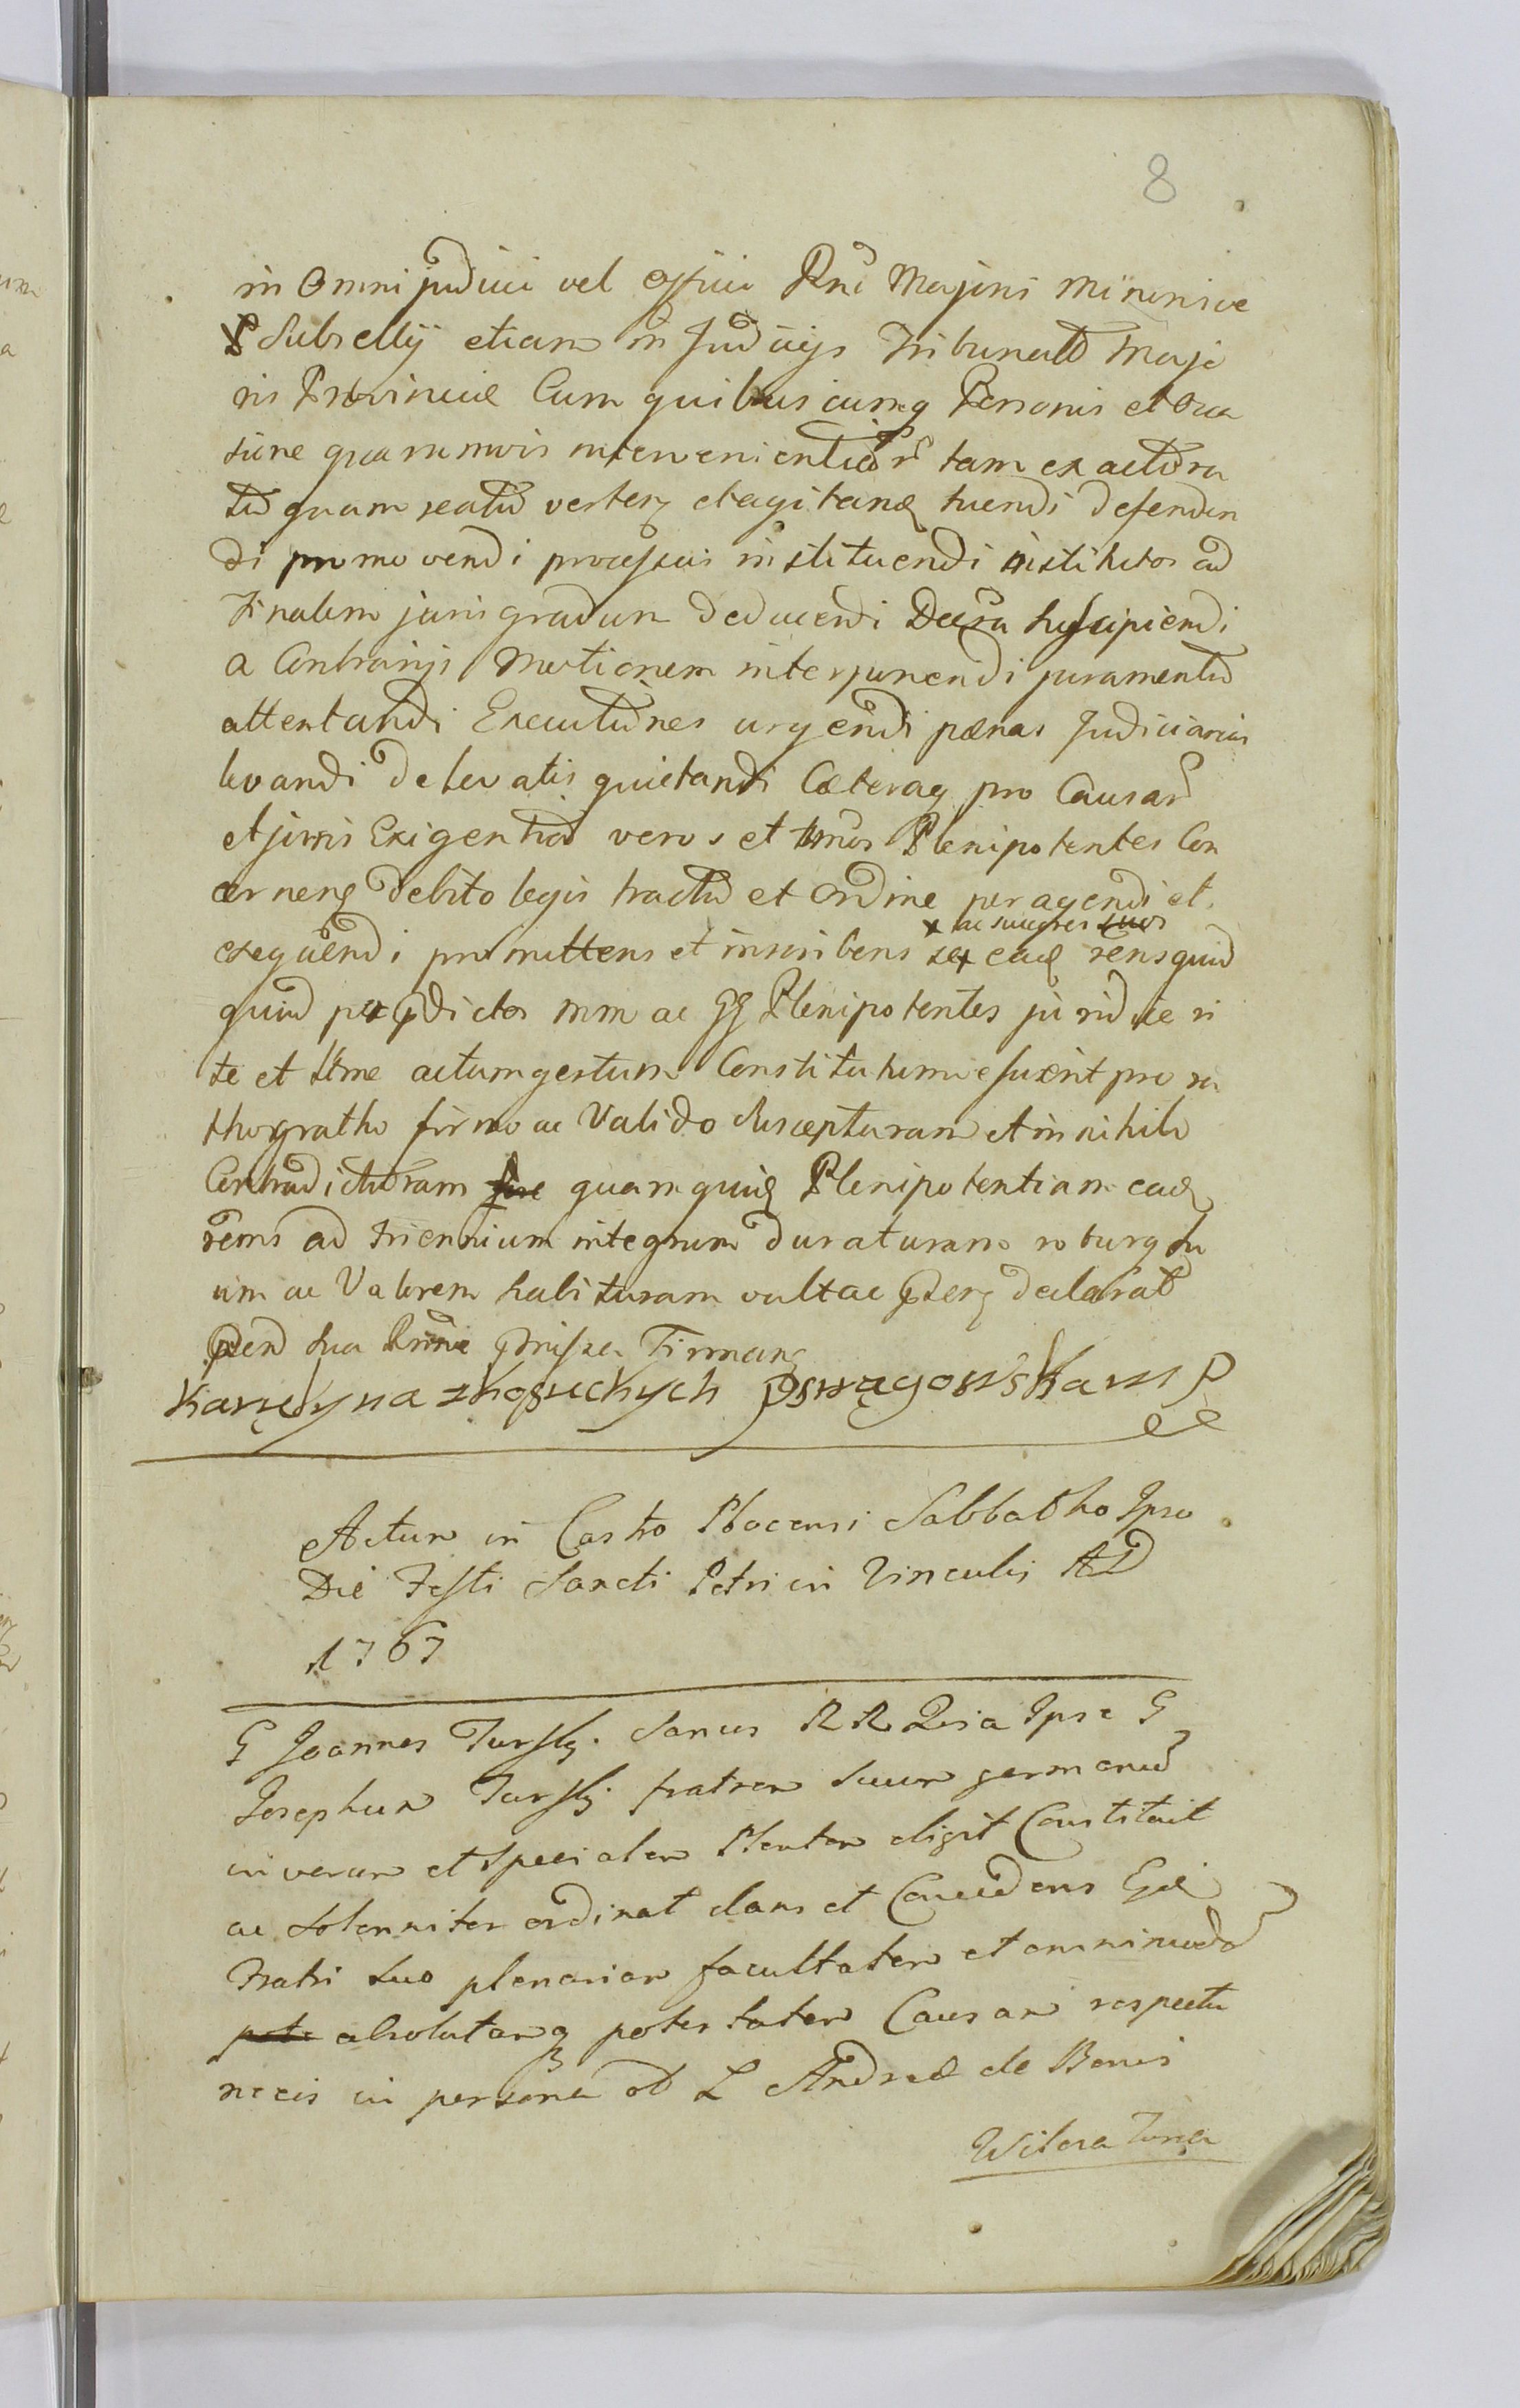 8
in Omni judicii vel officii Rni Majoris Minorisve
Subsellij etiam in Judicijs Tribunalũ Majo
ris Provinciæ Cum quibuscumq Personis et Oca
sione quarumvis intervenientiũ tam ex actora
tũ quam reatũ verten et agitan tuendi defenden
di promovendi processus instituendi institutos ad
Finalem juris gradum deducendi Decra suscipiendi
a Contrarijs Motionem interponendi juramentũ
attentandi Executiones urgendi pænas Judiciarias
levandi de levatis quietandi Cæteraq pro Causar
et juris Exigentia veros et ltmos Plenipotentes Con
cernen debito legis tractu et ordine peragendi et
x ac succres suos
exequendi promittens et inscribens se x ead rens quid
quid per pdictos mm ac GG Plenipotentes juridice ri
te et ltme actum gestum Constitutumve fuerit pro ra
tho gratho firmo ac Valido suscepturam et in nihilo
Contradicturam quamquid Plenipotentiam ead
rens ad triennium integrum duraturam roburq su
um ac Valorem habituram vult ac declarat
sua Firman
Actum in Castro Plocensi Sabbatho Ipso
Die Festi Sancti Petri in Vinculis AD
1767
G Joannes Turski Sanus R R Qsia Ipse G
Josephum Turski fratrem Suum germanũ
in verum et specialem Plentem eligit Constituit
ac Solenniter ordinat dans et Concedens Eid
Fratri suo plenariam facultatem et omnimodã
pote absolutamq potestatem Causam respectu
necis in persona ol L Andreæ de Bonis